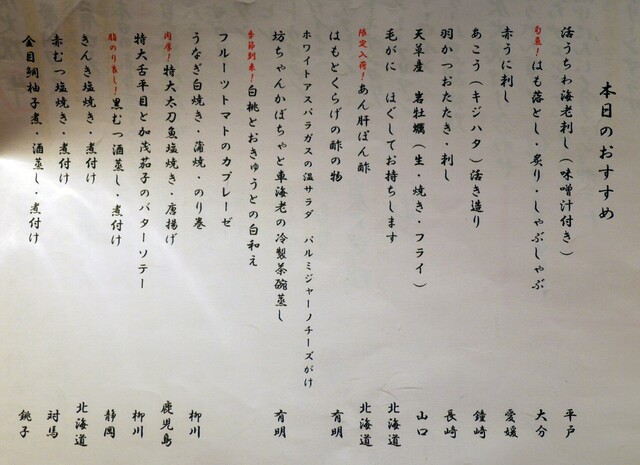 本日のおすすめ
活うちわ海老刺し(味噌汁付き) 平戸
旬魚!はも落とし・炙り・しゃぶしゃぶ 大分
赤うに刺し 愛媛
あこう(キジハタ)活き造り 鐘崎
羽かつおたたき・刺し 長崎
天草産 岩牡蠣(生・焼き・フライ) 山口
毛がに ほぐしてお持ちします 北海道
限定入荷!あん肝ぽん酢 北海道
はもとくらげの酢の物 有明
ホワイトアスパラガスの温サラダ パルミジャーノチーズがけ
坊ちゃんかぼちゃと車海老の冷製茶碗蒸し 有明
季節到来!白桃とおきゅうとの白和え
フルーツトマトのカプレーゼ
うなぎ白焼き・蒲焼・のり巻 柳川
肉厚!特大太刀魚塩焼き・唐揚げ 鹿児島
特大舌平目と加茂茄子のバターソテー 柳川
脂のり良し!黒むつ酒蒸し・煮付け 静岡
きんき塩焼き・煮付け 北海道
赤むつ塩焼き・煮付け 対馬
金目鯛柚子煮・酒蒸し・煮付け 銚子